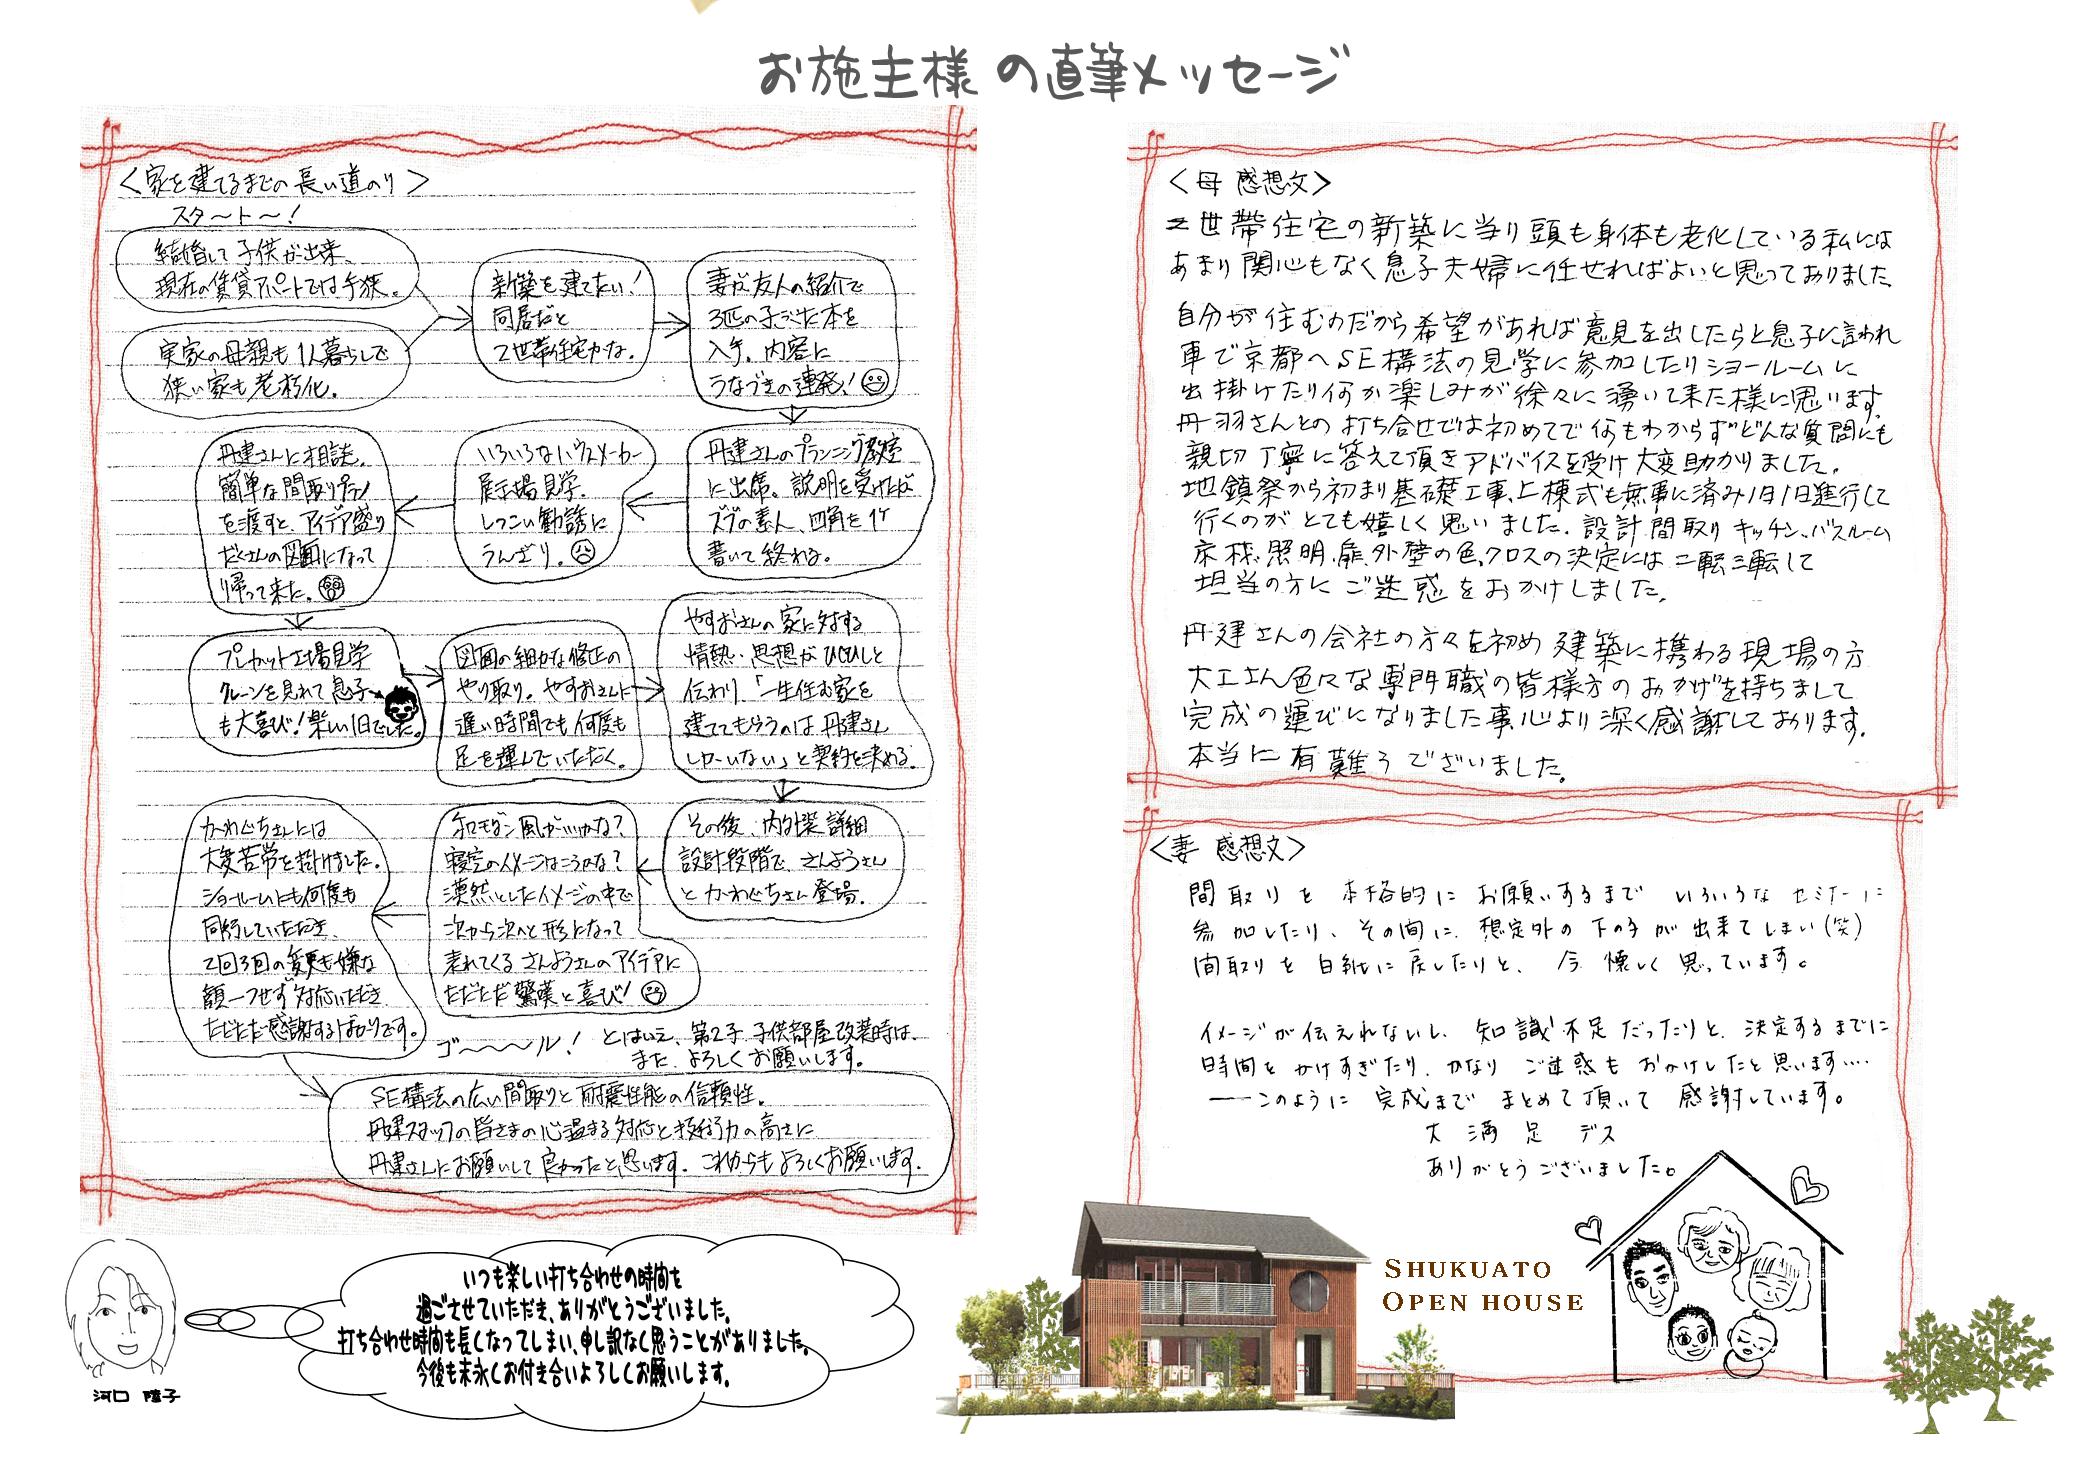 お施主様の直筆メッセージ
<家を建てるまでの長い道のり>
スタ〜ト〜!
結婚して子供が出来、
現在の賃貸アパートでは手狭。
実家の母親も1人暮らしで
狭い家も老朽化。
新築を建てたい!
同居だと
2世帯住宅かな。
妻が友人の紹介で
3匹の子ぶた本を
入手。内容に
うなづきの連発!
丹建さんのプランニング教室
に出席。説明を受けたが
ズブの素人、四角を1ケ
書いて終わる。
いろいろなハウスメーカー
展示場見学。
しつこい勧誘に
うんざり。
丹建さんに相談。
簡単な間取りプラン
を渡すと、アイデア盛り
だくさんの図面になって
帰って来た。
プレカット工場見学
クレーンを見れて息子
も大喜び!楽しい1日でした。
図面の細かな修正の
やり取り。やすおさんに
遅い時間でも何度も
足を運んでいただく。
やすおさんの家に対する
情熱・思想がひしひしと
伝わり「一生住む家を
建ててもらうのは丹建さん
しか〜いない」と契約を決める。
その後、内外装詳細
設計段階で、さんようさん
とかわぐちさん登場。
和モダン風がいいかな?
寝室のイメージはこうかな?
漠然としたイメージの中で
次から次へと形になって
表れてくるさんようさんのアイデアに
ただただ驚嘆と喜び!
かわぐちさんには
大変苦労を掛けました。
ショールームにも何度も
同行していただき、
2回3回の変更も嫌な
顔一つせず対応いただき
ただただ感謝するばかりです。
ゴ〜〜〜ル!
とはいえ、第2子 子供部屋改装時は、
また、よろしくお願いします。
SE構法の広い間取りと耐震性能の信頼性。
丹建スタッフの皆さまの心温まる対応と技術力の高さに
丹建さんにお願いして良かったと思います。これからもよろしくお願いします。
<母 感想文>
2世帯住宅の新築に当り頭も身体も老化している私には
あまり関心もなく息子夫婦に任せればよいと思っておりました
自分が住むのだから希望があれば意見を出したらと息子に言われ
車で京都へSE構法の見学に参加したりショールームに
出掛けたり何か楽しみが徐々に湧いて来た様に思います。
丹羽さんとの打ち合せでは初めてで何もわからずどんな質問にも
親切丁寧に答えて頂きアドバイスを受け大変助かりました。
地鎮祭から初まり基礎工事、上棟式も無事に済み1日1日進行して
行くのがとても嬉しく思いました。設計間取りキッチン、バスルーム
床材、照明、扉、外壁の色、クロスの決定には二転三転して
担当の方にご迷惑をおかけしました。
丹建さんの会社の方々を初め建築に携わる現場の方
大工さん色々な専門職の皆様方のおかげを持ちまして
完成の運びになりました事心より深く感謝しております。
本当に有難うございました。
<妻 感想文>
間取りを本格的にお願いするまでいろいろなセミナーに
参加したり、その間に、想定外の下の子が出来てしまい(笑)
間取りを白紙に戻したりと、今懐しく思っています。
イメージが伝えれないし、知識不足だったりと、決定するまでに
時間をかけすぎたり、かなりご迷惑もおかけしたと思います....
──このように完成までまとめて頂いて感謝しています。
大満足デス
ありがとうございました。
いつも楽しい打ち合わせの時間を
過ごさせていただき、ありがとうございました。
打ち合わせ時間も長くなってしまい、申し訳なく思うことがありました。
今後も末永くお付き合いよろしくお願いします。
河口 陸子
SHUKUATO
OPEN HOUSE